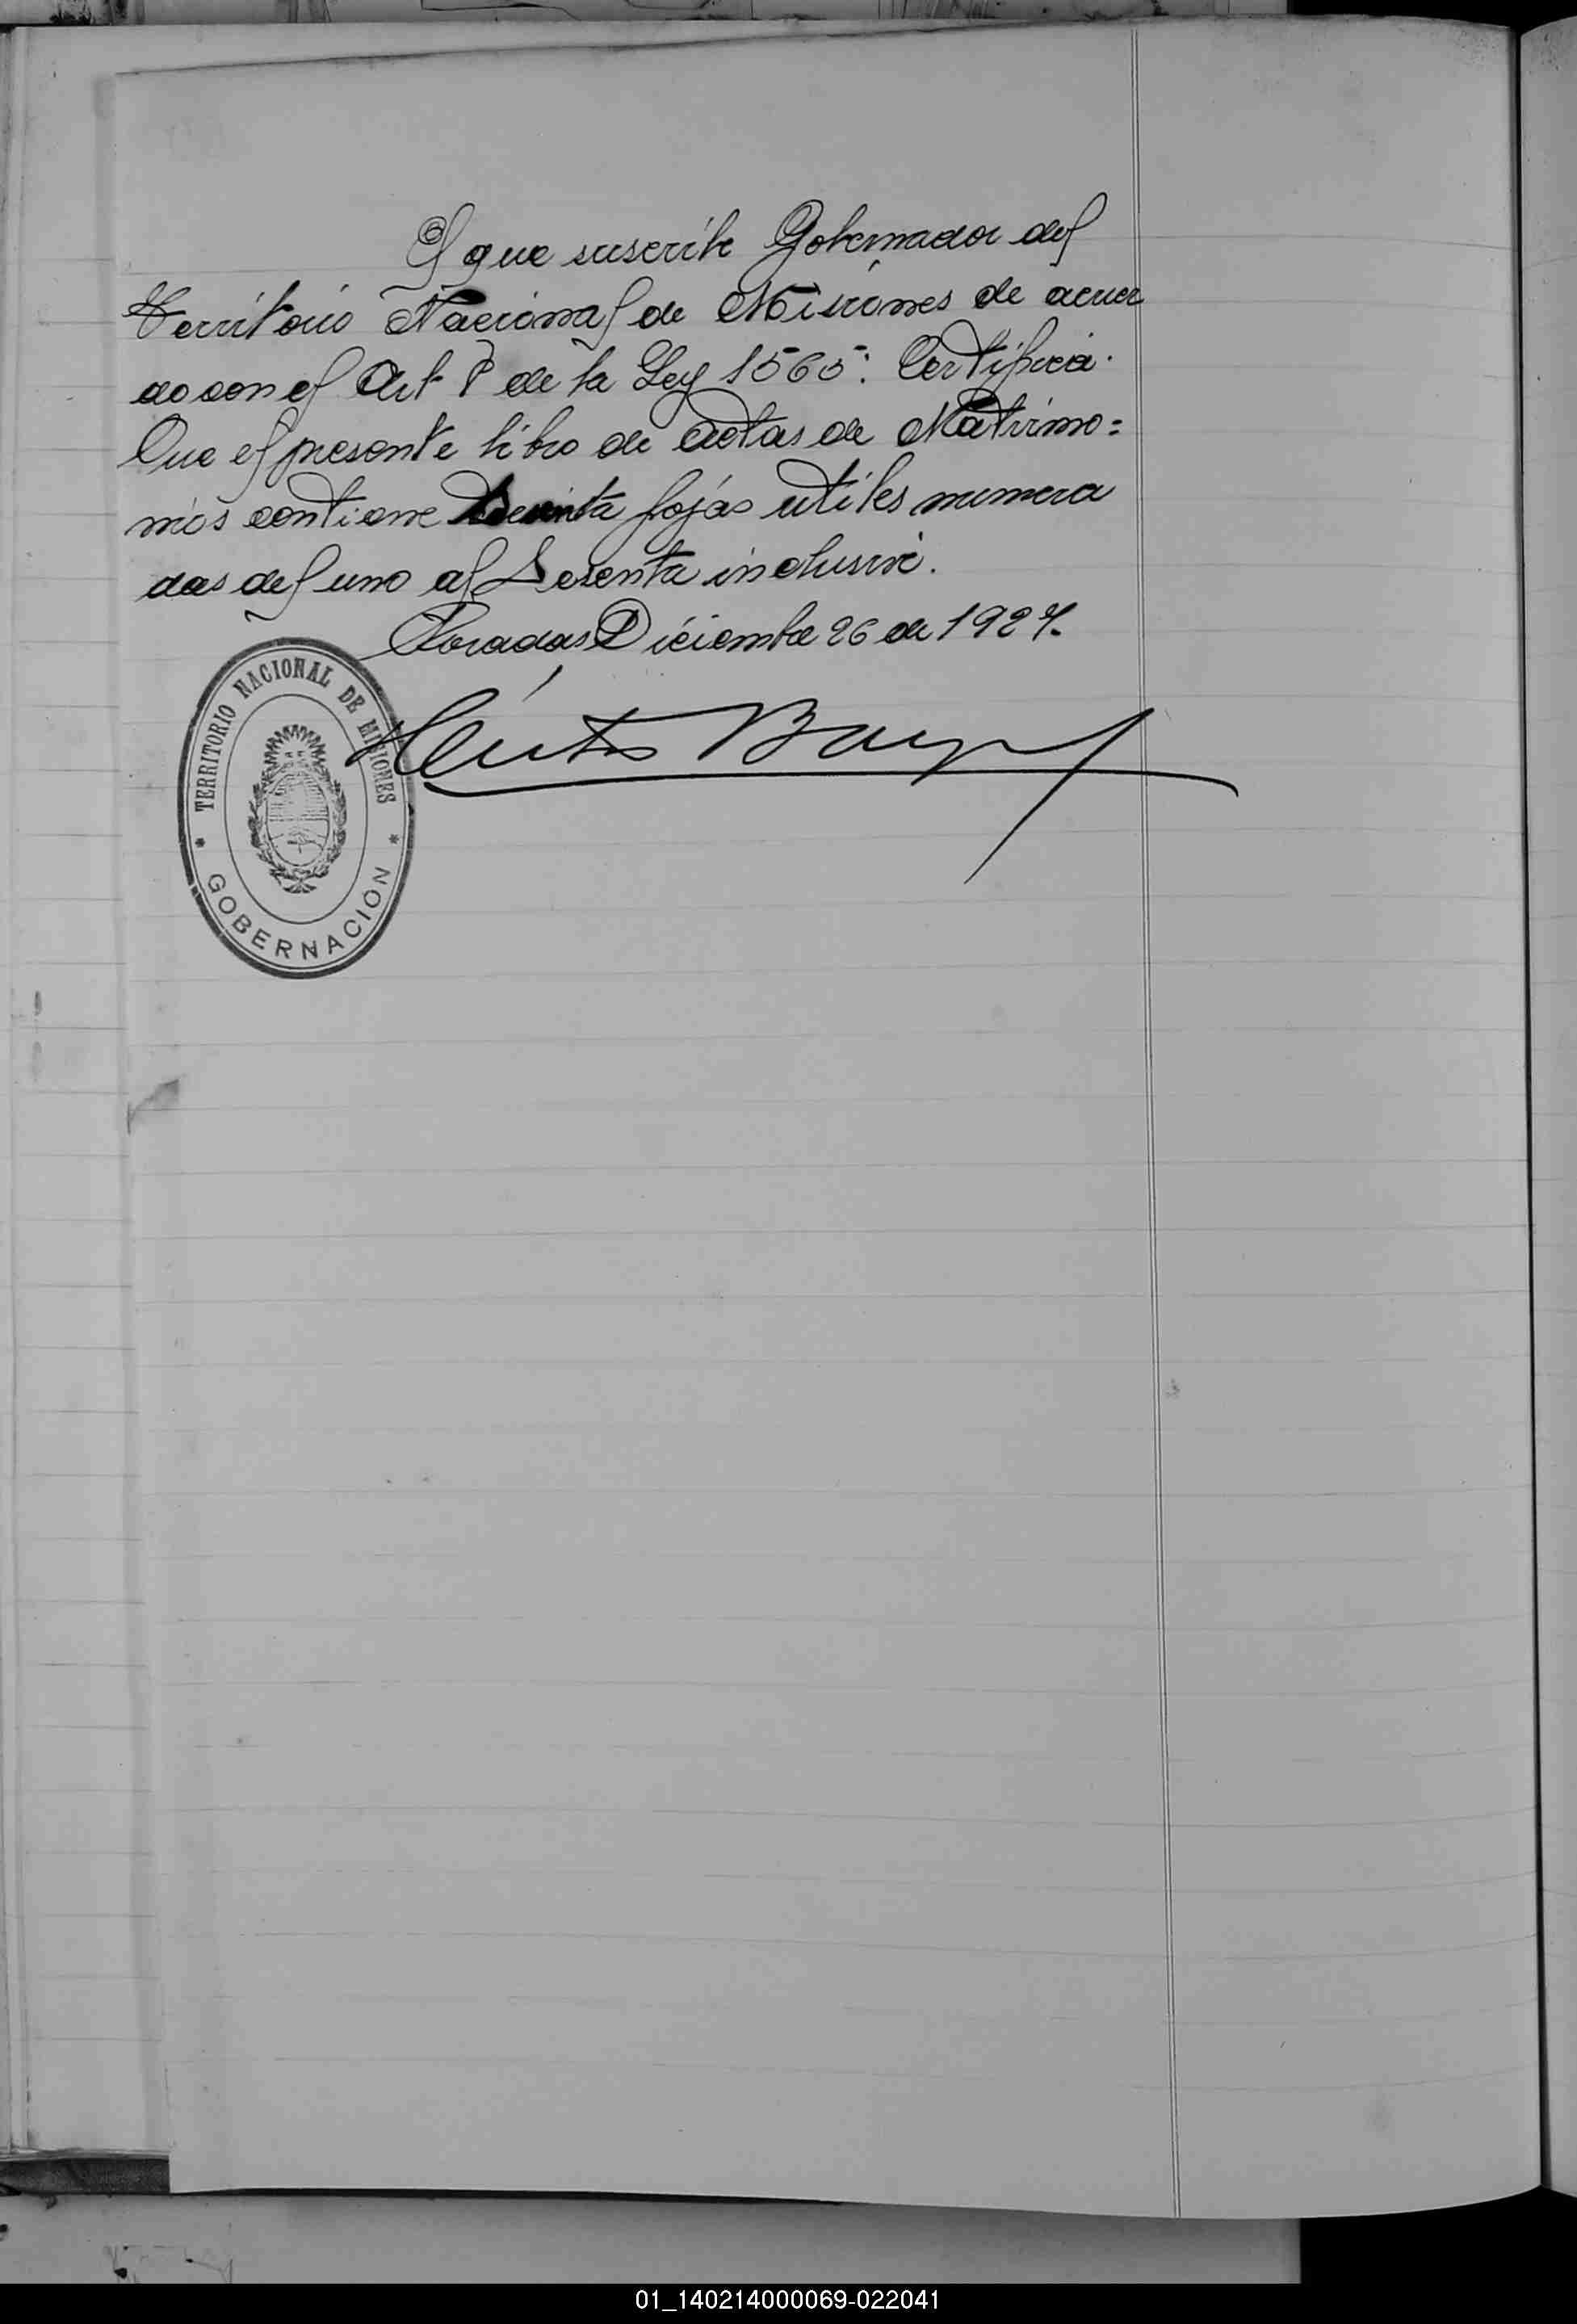 El que suscribe Gobernador del
Territorio Nacional de Misiones de acuer
do con el Art de la Ley 1565: Certifica.
Que el presente libro de actas de Matrimo=
nios contiene fojas utiles numera
das del uno al Sesenta inclusive.
Posadas Diciembre 26 de 1927.
TERRITORIO NACIONAL DE MISIONES
* GOBERNACIÓN *
01_140214000069-022041